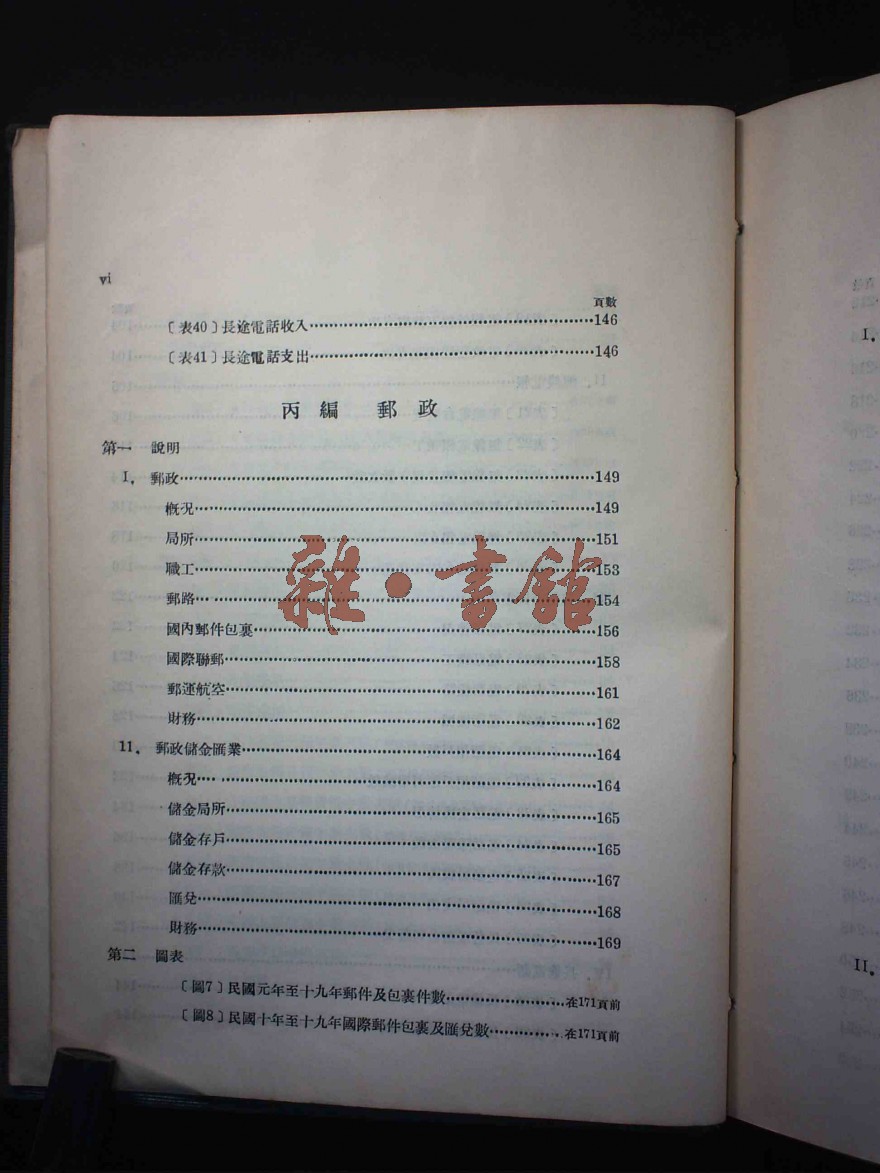 vi
頁數
〔表40〕長途電話收入……146
〔表41〕長途電話支出……146
丙編 郵政
第一 說明
I. 郵政……149
概況……149
局所……151
職工……153
郵路……154
國內郵件包裹……156
國際聯郵……158
郵運航空……161
財務……162
11. 郵政儲金匯業……164
概況……164
儲金局所……165
儲金存戶……165
儲金存款……167
匯兌……168
財務……169
第二 圖表
〔圖7〕民國元年至十九年郵件及包裹件數……在171頁前
〔圖8〕民國十年至十九年國際郵件包裹及匯兌數……在171頁前
雜·書館
I.
II.